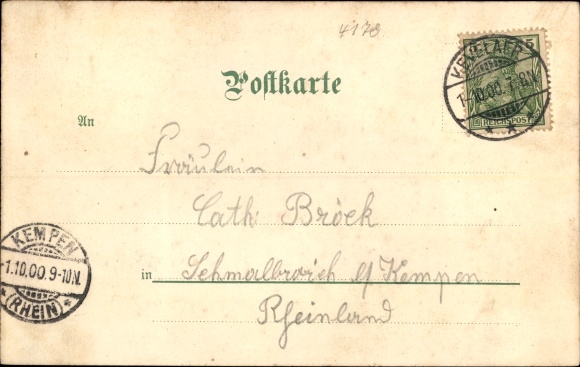 4178
Postkarte
5
KEVELAER
1.10.00. 7-8N.
REICHSPOST
An
Fräulein
Cath. Bröck
KEMPEN
1.10.00.9-10N.
(RHEIN)
in Schmalbroich b/Kempen
Rheinland